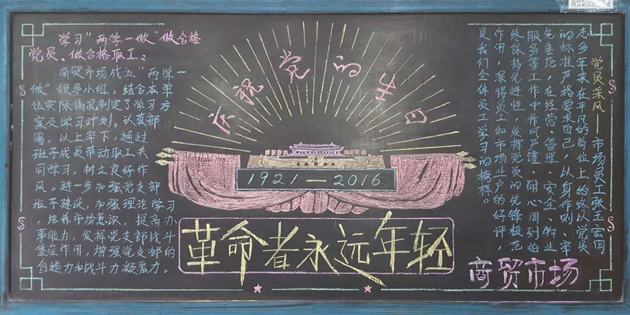 学习"两学一做"做合格
党员、做合格职工：
商贸市场成立"两学一
做"领导小组，结合本单
位实际情况制定了学习方
案及学习计划，认真部
署，从上率下，通过
班子成员带动职工共
同学习，树立良好作
风。进一步加强党支部
班子建设，加强理论学习
，培养市场意识，提高办
事能力，发挥党支部战斗
堡垒作用，增强党支部的
创造力和战斗力凝聚力。
庆祝党的生日
1921—2016
革命者永远年轻
党员采风——市场员工张玉宏同
志多年来在平凡的岗位上始终以党员
的标准严格要求自己，以身作则、率
先垂范，在经营、管理、安全、物业
服务等工作中作风严谨、耐心周到始
终保持先进性，发挥党员的先锋模范
作用，深得员工和市场业户的好评，
是我们全体员工学习的楷模。
商贸市场